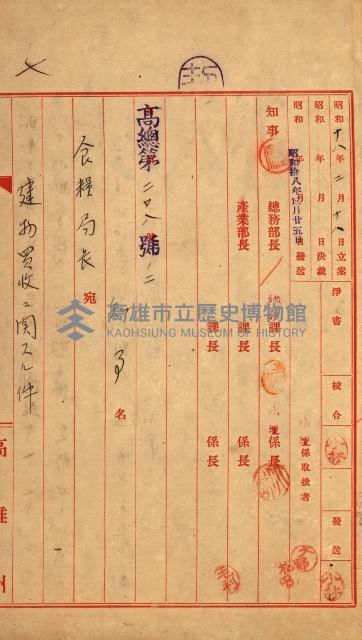 昭和十八年二月十八日立案 淨書 校合
昭和 年 月 日決裁 主任係取扱者
昭和 年 月 日發送 發送
昭和拾八年 月廿五日
知事 總務部長 課長 係長
產業部長 課長 係長
課長 係長
高總第二〇八號ノ二
知事名
食糧局長 宛
建物買收ニ関スル件
高雄州
高雄市立歷史博物館
KAOHSIUNG MUSEUM OF HISTORY